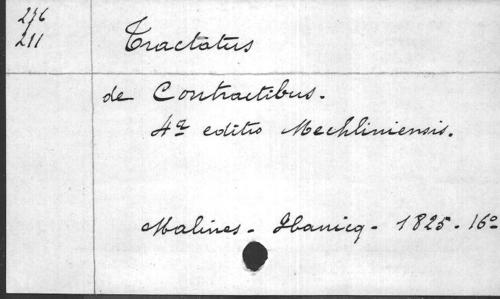 276
211
Tractatus
de Contractibus.
4ª editio Mechliniensis.
Malines - Hanicq - 1825 - 16º